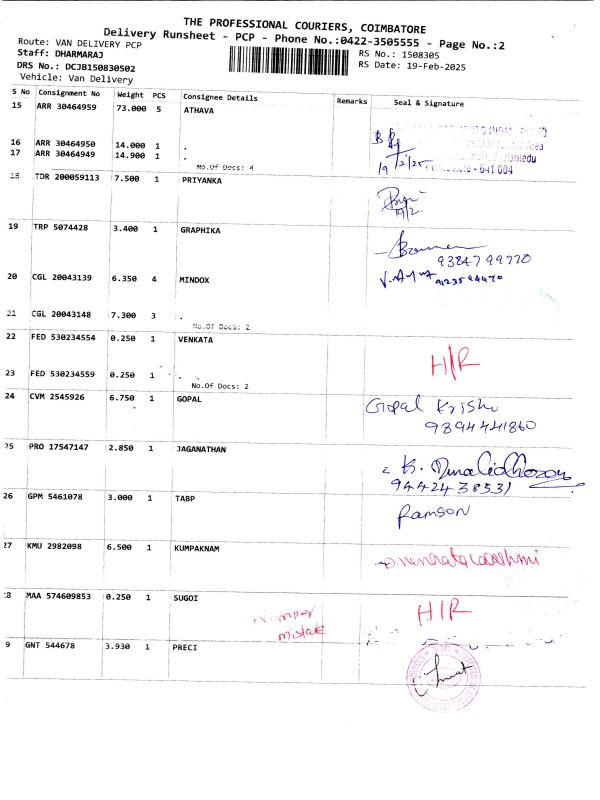 THE PROFESSIONAL COURIERS, COIMBATORE
Delivery Runsheet - PCP - Phone No.:0422-3505555 - Page No.:2
Route: VAN DELIVERY PCP RS No.: 1508305
Staff: DHARMARAJ RS Date: 19-Feb-2025
DRS No.: DCJB150830502
Vehicle: Van Delivery
S No Consignment No Weight PCS Consignee Details Remarks Seal & Signature
15 ARR 30464959 73.000 5 ATHAVA
16 ARR 30464950 14.000 1 .
17 ARR 30464949 14.900 1 .
No.Of Docs: 4
19/2/25
641 004
18 TDR 200059113 7.500 1 PRIYANKA
19/2
19 TRP 5074428 3.400 1 GRAPHIKA
9384799770
20 CGL 20043139 6.350 4 MINDOX
21 CGL 20043148 7.300 3 .
No.Of Docs: 2
22 FED 530234554 0.250 1 VENKATA
H/R
23 FED 530234559 0.250 1 .
No.Of Docs: 2
24 CVM 2545926 6.750 1 GOPAL
Gopal Krishn
9894441860
25 PRO 17547147 2.850 1 JAGANATHAN
9442438531
26 GPM 5461078 3.000 1 TABP
Ramson
27 KMU 2982098 6.500 1 KUMPAKNAM
28 MAA 574609853 0.250 1 SUGOI
mistake
H/R
9 GNT 544678 3.930 1 PRECI